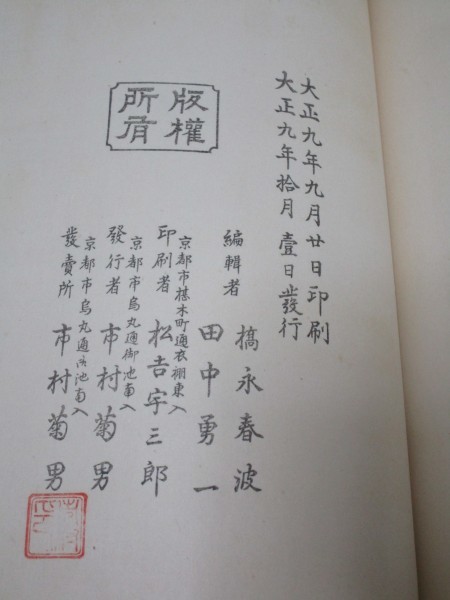 大正九年九月廿日印刷
大正九年拾月壹日發行
版權
所有
編輯者
槗永春波
田中勇一
京都市椹木町通衣棚東入
印刷者 松吉宇三郎
京都市烏丸通御池南入
發行者 市村菊男
京都市烏丸通御池南入
發賣所 市村菊男